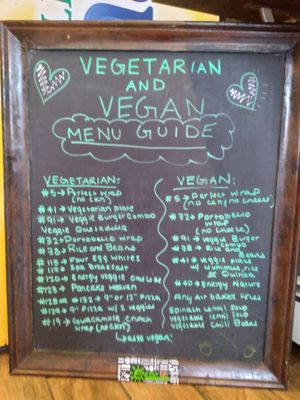 VEGETARIAN
AND
VEGAN
MENU GUIDE
VEGETARIAN:
#5 → Perfect Wrap
(no ckn)
#41 → Vegetarian plate
#91 → Veggie Burger Combo
Veggie Quesadilla
#32 → Portobello Wrap
#38 → Rice and Beans
#118 → Four Egg Whites
#119 → Spa Breakfast
#120 → Energy Veggie Omelette
#123 → Pancake Heaven
#128 or #132 → 9" or 12" Pizza
#129 → 9" Pizza w/ 2 veggies
#19 → Guacamole Crunch
Wrap (no ckn)
↳ also vegan!
VEGAN:
#5 → Perfect Wrap
(no ckn/no cheese)
#32 → Portobello
Wrap
(no cheese)
#91 → Veggie Burger
Combo
#38 → Rice and
Beans
#41 → Veggie plate
w/ Hummus, rice
or Quinoa
#40 → Energy Nature
Any air baked fries
Spinach Lentil Soup
Vegetable Lentil Soup
Vegetable Chili Beans